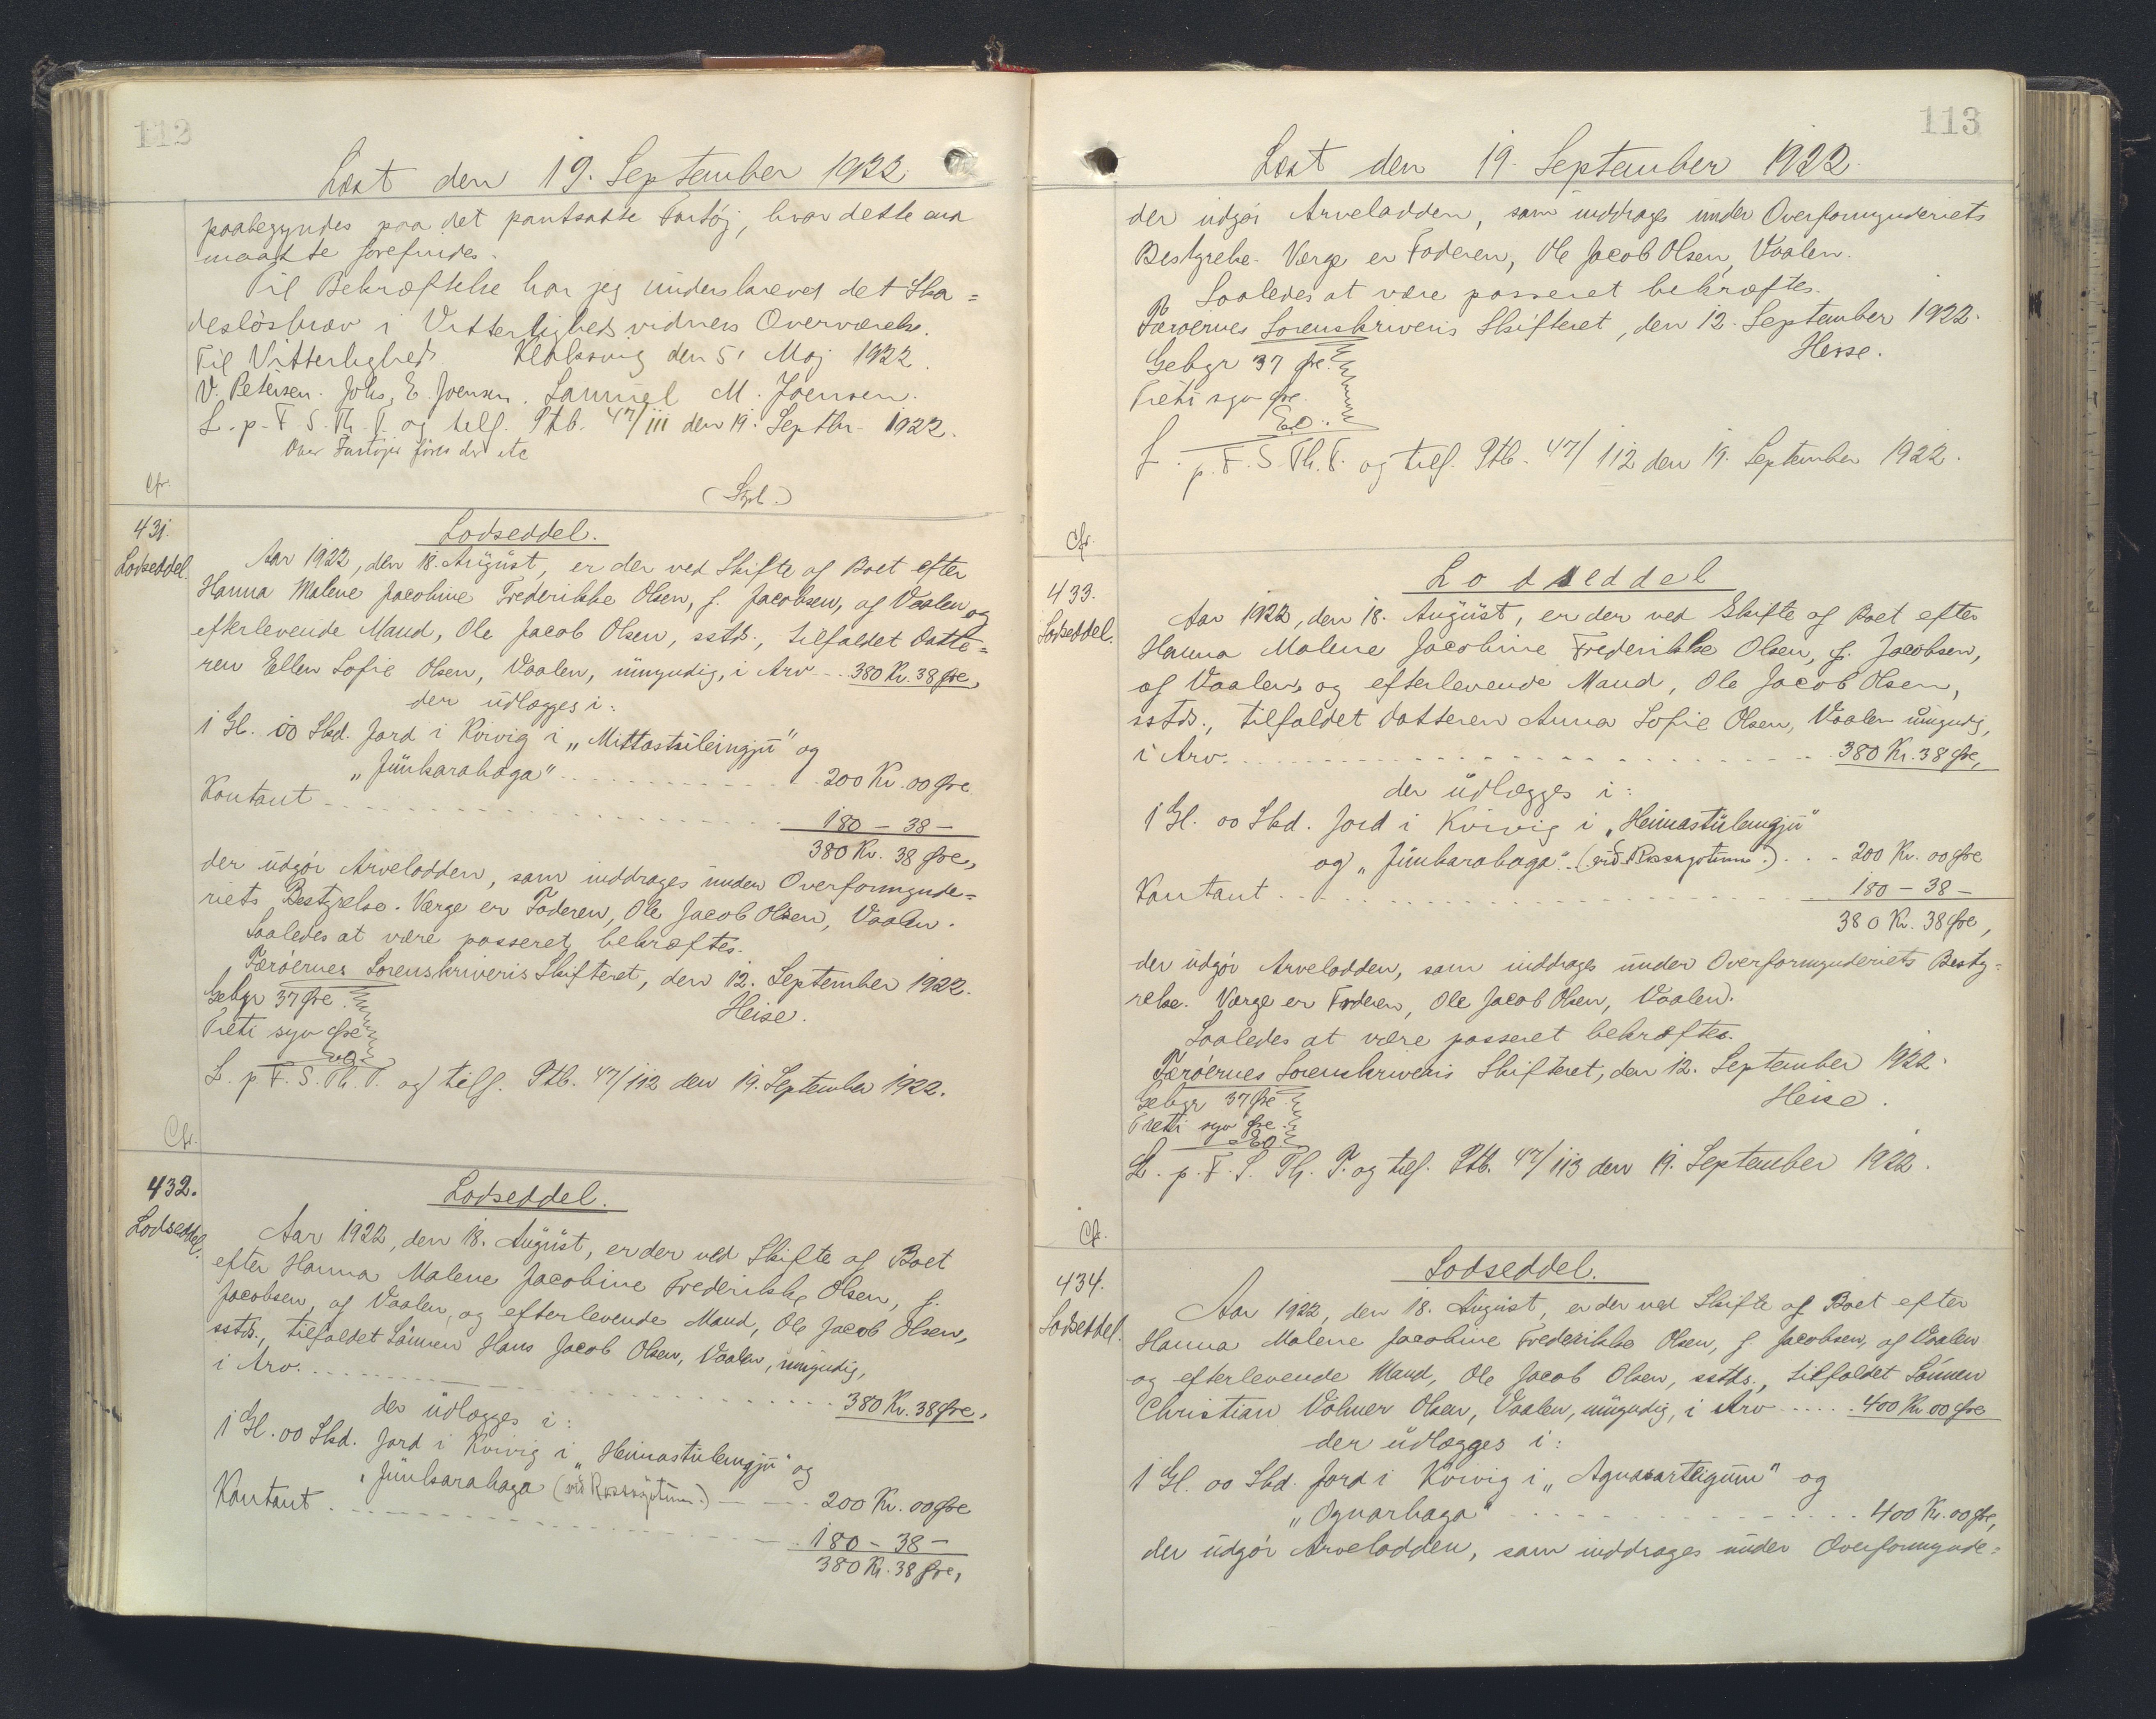 112
Læst den 19. September 1922
paabegyndes paa det pantsatte Fartøj, hvor dette end
maatte forefindes.
Til Bekræftelse har jeg underskrevet det Ska=
desløsbrev i Vitterlighedsvidners Overværelse.
Til Vitterlighed. Klaksvig den 5' Maj 1922.
V. Petersen. Johs, E. Joensen. Samuel M. Joensen.
L. p. F. S. Th. P. og tilf. Ptb. 47/111 den 19. Septbr. 1922.
Over Fartøjer föres der etc
Cfr.
431.
Lodseddel.
Lodseddel.
Aar 1922, den 18. August, er der ved Skifte af Boet efter
Hanna Malene Jacobine Frederikke Olsen, f. Jacobsen, af Vaalen og
efterlevende Mand, Ole Jacob Olsen, sstds., tilfaldet Datte=
ren Ellen Sofie Olsen, Vaalen, umyndig, i Arv .. 380 Kr. 38 Øre,
der udlægges i:
1 Gl. 00 Skd. Jord i Kvivig i „Mittastuleingju" og
„Junkarahaga" . . . 200 Kr. 00 Øre
Kontant . . . 180 - 38 -
380 Kr. 38 Øre,
der udgør Arvelodden, som inddrages under Overformynde=
riets Bestyrelse. Værge er Faderen, Ole Jacob Olsen, Vaalen.
Saaledes at være passeret bekræftes.
Færöernes Sorenskriveris Skifteret, den 12. September 1922.
Gebyr 37 Øre Heise.
Treti syv Øre
L. p. F. S. Th. P. og tilf. Ptb. 47/112 den 19. September 1922.
Cfr.
432.
Lodseddel.
Lodseddel.
Aar 1922, den 18. August, er der ved Skifte af Boet
efter Hanna Malene Jacobine Frederikke Olsen, f.
Jacobsen, af Vaalen, og efterlevende Mand, Ole Jacob Olsen,
sstds., tilfaldet Sönnen Hans Jacob Olsen, Vaalen, umyndig,
i Arv. . . . 380 Kr. 38 Øre,
der udlægges i:
1 Gl. 00 Skd. Jord i Kvivig i „Heimastulengju" og
„Junkarahaga (við Rossagötuna.) — 200 Kr. 00 Øre
Kontant . . . 180 - 38 -
380 Kr. 38 Øre,
113
Læst den 19. September 1922.
der udgør Arvelodden, som inddrages under Overformynderiets
Bestyrelse. Værge er Faderen, Ole Jacob Olsen, Vaalen.
Saaledes at være passeret bekræftes.
Færöernes Sorenskriveris Skifteret, den 12. September 1922.
Gebyr 37 Øre. Heise.
Treti syv Øre.
L. p. F. S. Th. P. og tilf. Ptb. 47/112 den 19. September 1922.
Cfr.
433.
Lodseddel.
Lodseddel
Aar 1922, den 18. August, er der ved Skifte af Boet efter
Hanna Malene Jacobine Frederikke Olsen, f. Jacobsen,
af Vaalen, og efterlevende Mand, Ole Jacob Olsen,
sstds., tilfaldet Datteren Anna Sofie Olsen, Vaalen umyndig,
i Arv. . . . 380 Kr. 38 Øre,
der udlægges i:
1 Gl. 00 Skd. Jord i Kvivig i „Heimastulengju"
og „Junkarahaga" (við Rossagotuna.) . . . 200 Kr. 00 Øre
Kontant . . . 180 - 38 -
380 Kr. 38 Øre,
der udgør Arvelodden, som inddrages under Overformynderiets Besty=
relse. Værge er Faderen, Ole Jacob Olsen, Vaalen.
Saaledes at være passeret bekræftes.
Færöernes Sorenskriveris Skifteret, den 12. September 1922.
Gebyr 37 Øre Heise.
Tretti syv Øre.
L. p. F. S. Th. P. og tilf. Ptb. 47/113 den 19. September 1922.
Cfr.
434.
Lodseddel.
Lodseddel.
Aar 1922, den 18. August, er der ved Skifte af Boet efter
Hanna Malene Jacobine Frederikke Olsen, f. Jacobsen, af Vaalen
og efterlevende Mand, Ole Jacob Olsen, sstds., tilfaldet Sönnen
Christian Volmer Olsen, Vaalen, umyndig, i Arv ..... 400 Kr. 00 Øre
der udlægges i:
1 Gl. 00 Skd. Jord i Kvivig i „Agnasarteigum" og
„Ognarhaga" . . . 400 Kr. 00 Øre,
der udgør Arvelodden, som inddrages under Overformynde=